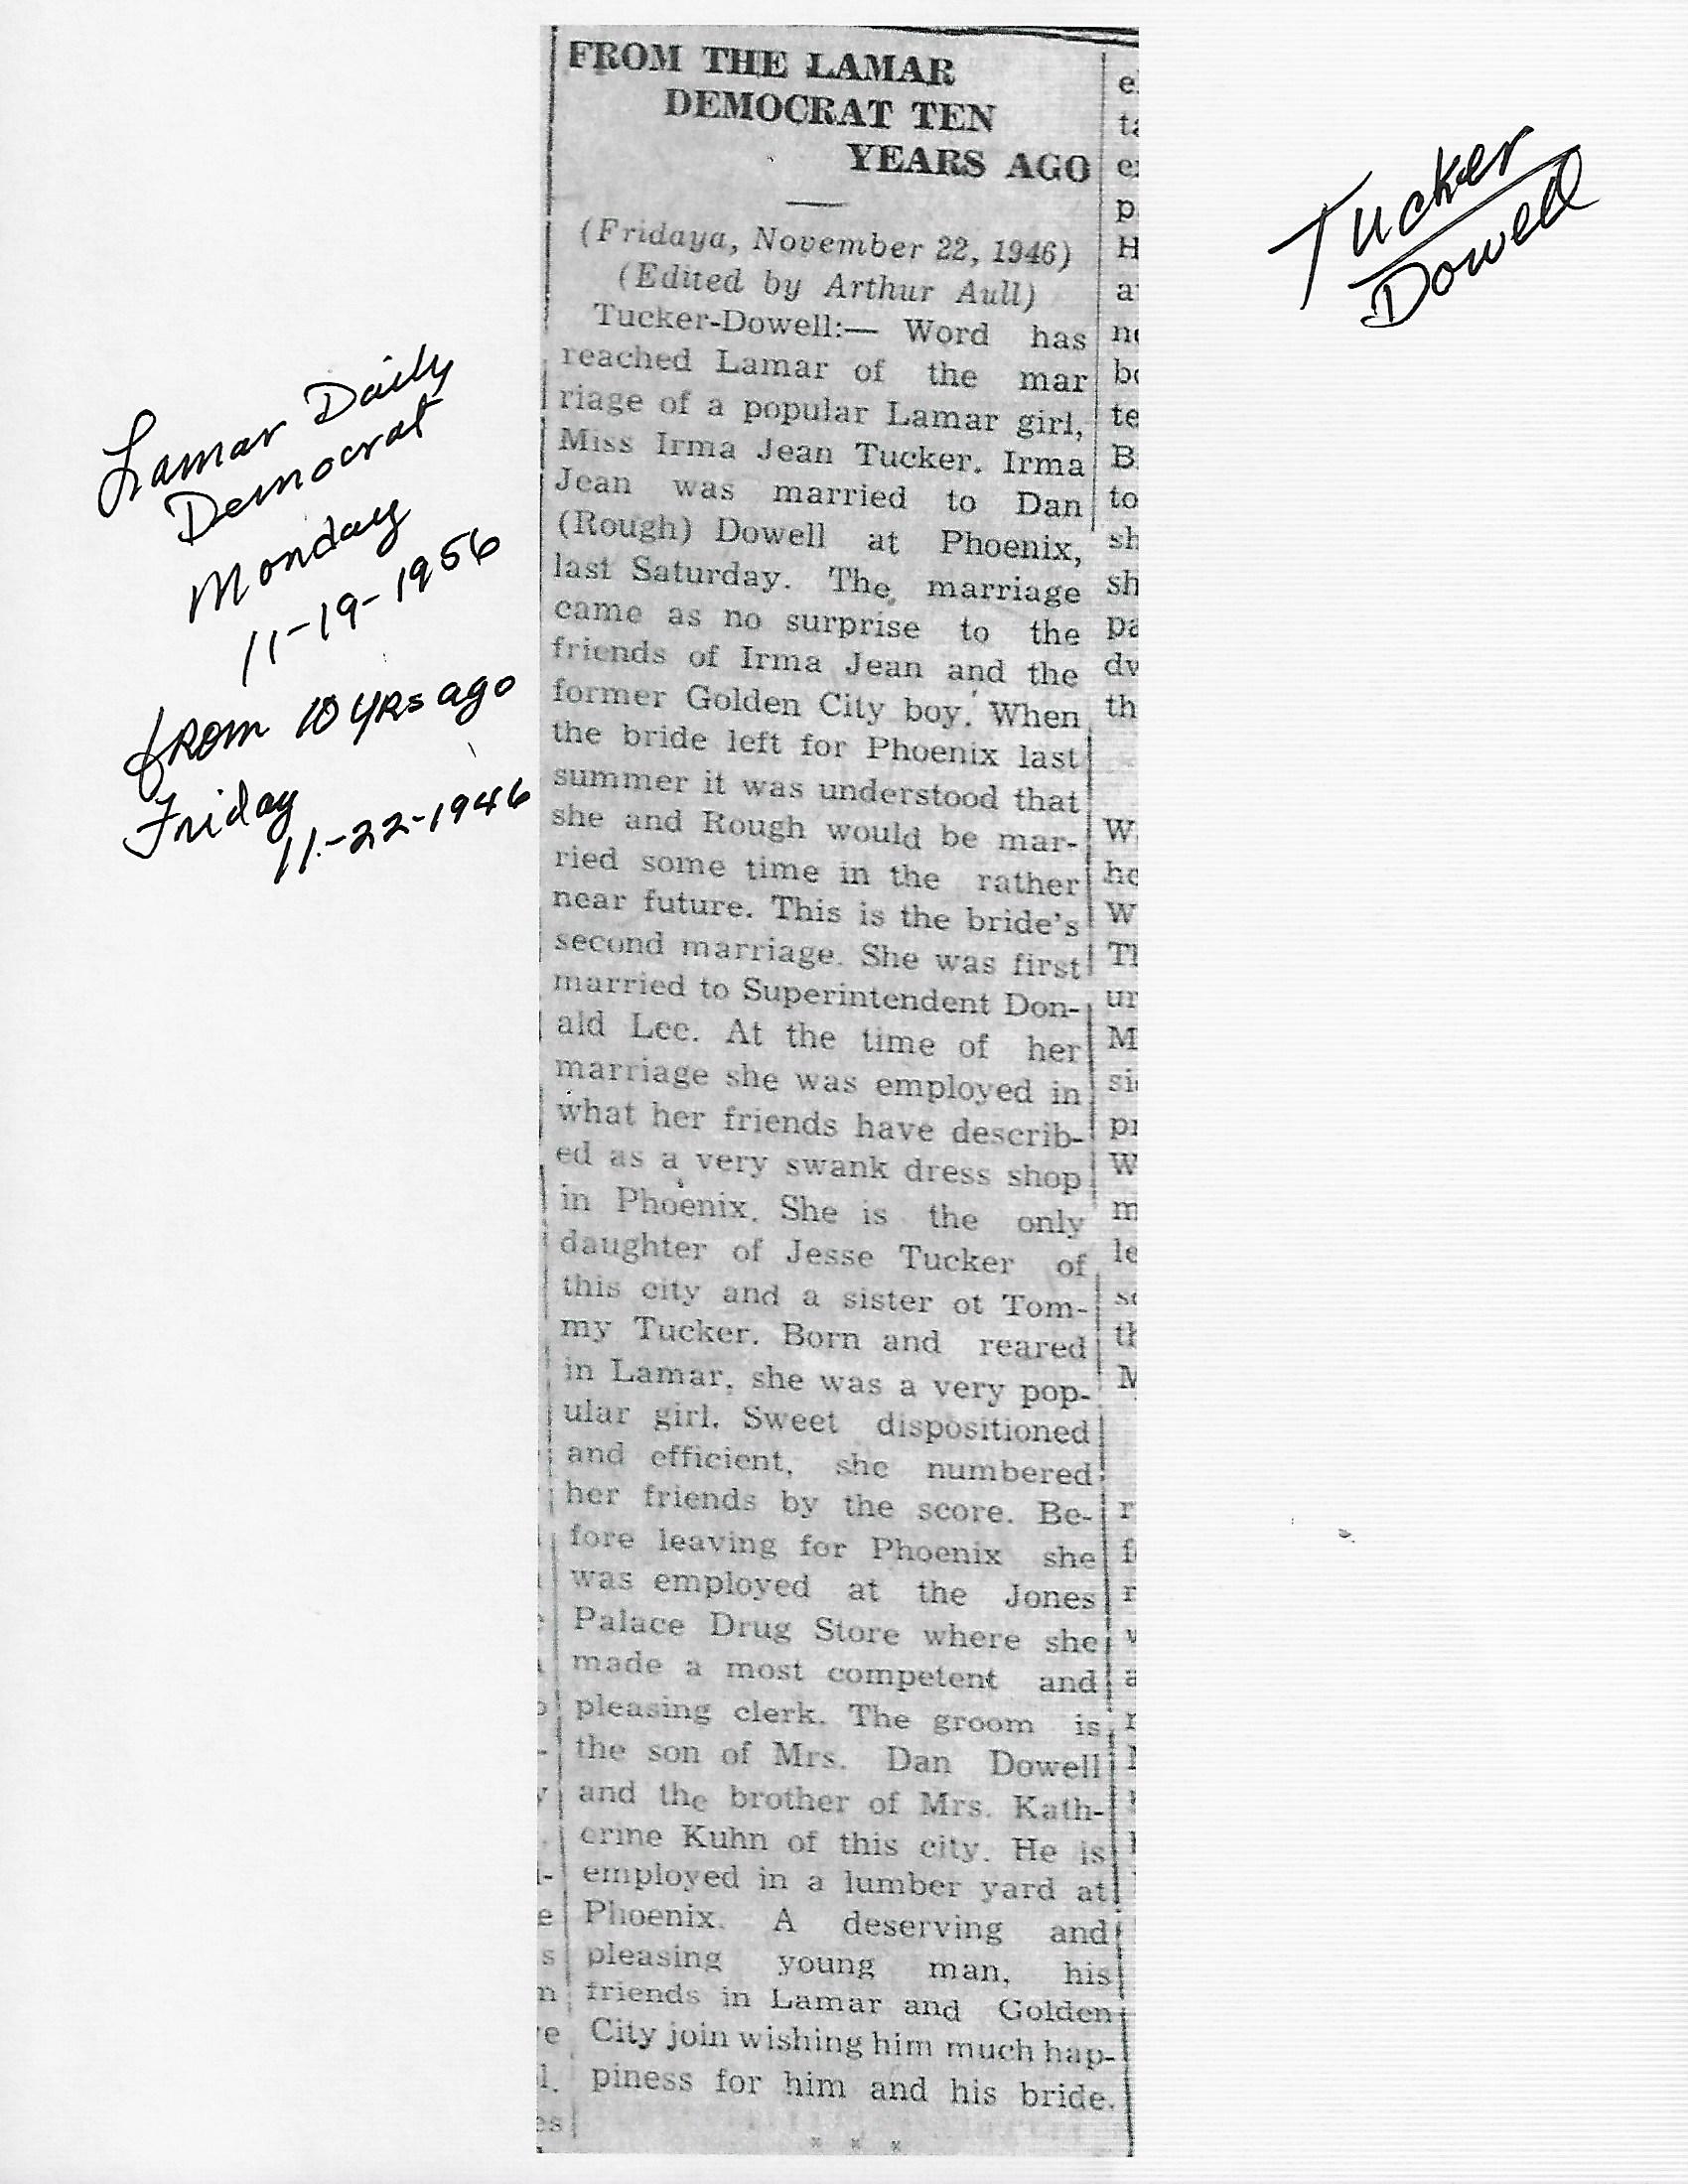 FROM THE LAMAR
DEMOCRAT TEN
YEARS AGO
(Fridaya, November 22, 1946)
(Edited by Arthur Aull)
Tucker-Dowell:— Word has
reached Lamar of the mar
riage of a popular Lamar girl,
Miss Irma Jean Tucker. Irma
Jean was married to Dan
(Rough) Dowell at Phoenix,
last Saturday. The marriage
came as no surprise to the
friends of Irma Jean and the
former Golden City boy. When
the bride left for Phoenix last
summer it was understood that
she and Rough would be mar-
ried some time in the rather
near future. This is the bride's
second marriage. She was first
married to Superintendent Don-
ald Lee. At the time of her
marriage she was employed in
what her friends have describ-
ed as a very swank dress shop
in Phoenix. She is the only
daughter of Jesse Tucker of
this city and a sister ot Tom-
my Tucker. Born and reared
in Lamar, she was a very pop-
ular girl. Sweet dispositioned
and efficient, she numbered
her friends by the score. Be-
fore leaving for Phoenix she
was employed at the Jones
Palace Drug Store where she
made a most competent and
pleasing clerk. The groom is
the son of Mrs. Dan Dowell
and the brother of Mrs. Kath-
erine Kuhn of this city. He is
employed in a lumber yard at
Phoenix. A deserving and
pleasing young man, his
friends in Lamar and Golden
City join wishing him much hap-
piness for him and his bride.
x x x
Lamar Daily
Democrat
Monday
11-19-1956
from 10 yrs ago
Friday
11-22-1946
Tucker
Dowell